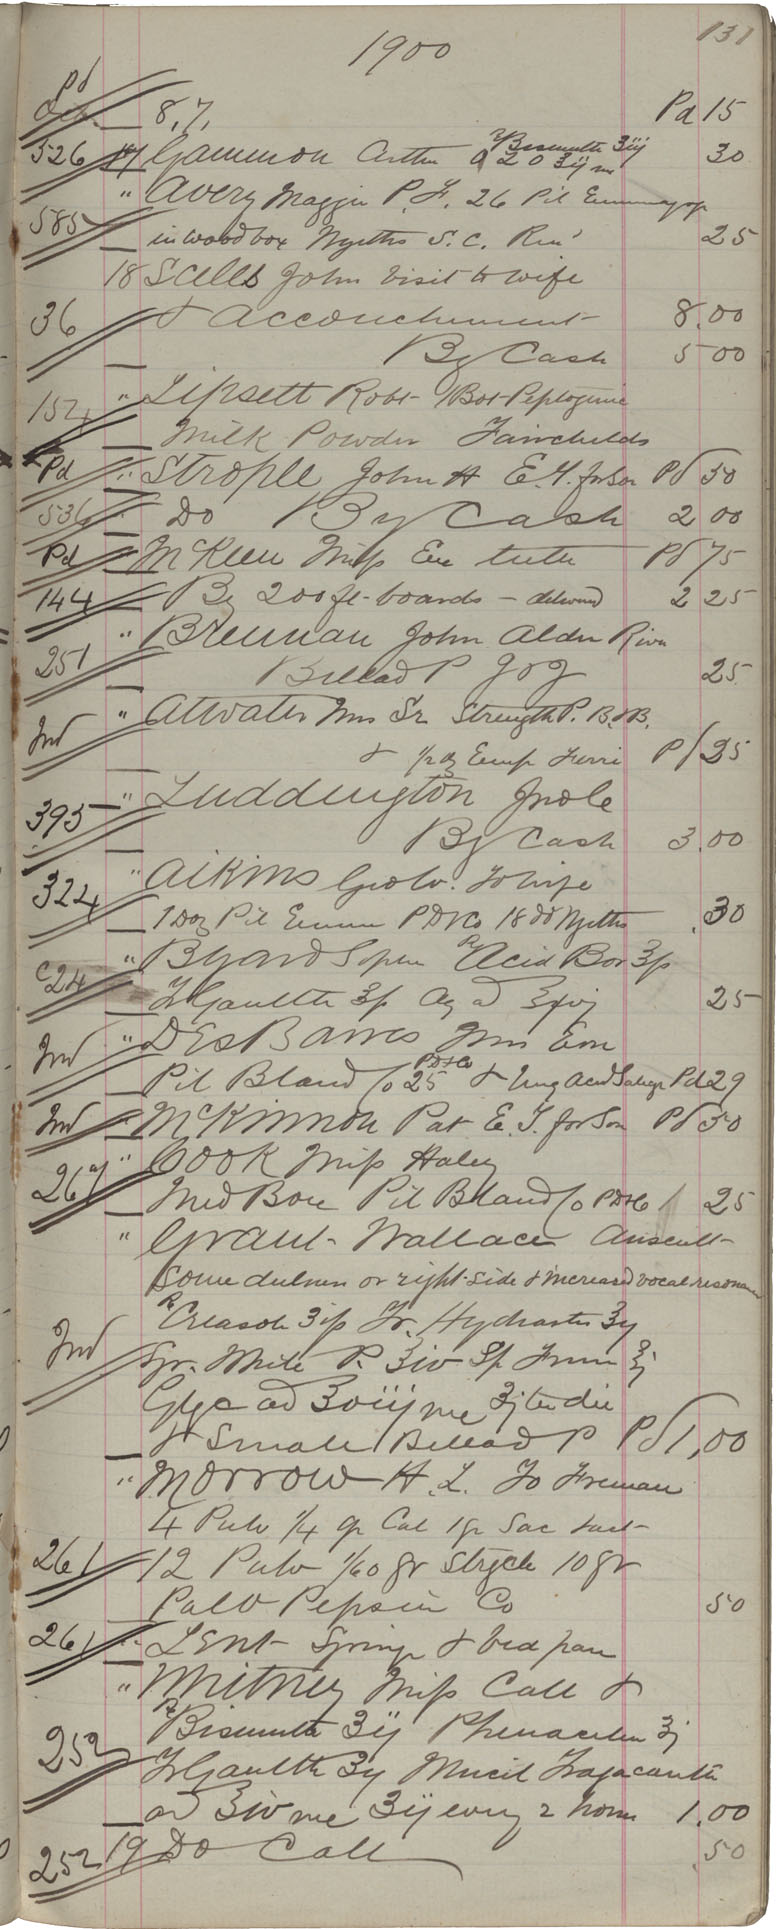 131
1900
Pd 8,7, Pd 15
526 17 Gammon Arthur Bismuth ʒiij 30
" Avery Maggie P.F. 26 Pil
585 in wood box Wyeths S.C. 25
18 Sells John Visit to wife
36 & Accouchement 8.00
By Cash 5 00
154 " Lipsett Robt 1 Box Peptogenic
Milk Powder Fairchilds
Pd " Strople John H E.T. for Son Pd 50
536 " Do By Cash 2 00
Pd " McKeen Miss Ex tooth Pd 75
144 By 200 ft boards - delivered 2 25
" Brennan John Alder River
251 Bellad P 25
Ind " Atwater Mrs Sr Strength P. B.&B.
& 1/2 dz Emp Ferri Pd 25
395 " Luddington
By Cash 3.00
324 " Aikins Geo W. To wife
1 Doz Pil P D & Co 18 do Wyeths .30
" Byard R Acid Bor
C24 Tr Gaulth Aq ad 25
Ind " DesBarres Mrs
Pil Blaud Co 25 PD&Co & Ung Acid Pd 29
Ind " McKinnon Pat E.T. for Son Pd 50
267 " Cook Miss Haley
Med Box Pil Blaud Co PD&Co 25
" Grant Wallace Auscult
Some dulness or right side & increased vocal resonance
R Creasote Tr. Hydrastis
Ind Spr. Menth P. ʒiv Sp
Glyc ad ℥viij me ʒj ter die
& Small Bellad P Pd 1,00
" Morrow H.L. To Freman
4 Pulv 1/4 gr Cal 1 gr Sac Lact
261 12 Pulv 1/60 gr Strych 10 gr
Pulv Pepsin Co 50
261 " Lent Syringe & bed pan
" Whitney Miss Call &
R Bismuth ʒij Phenacetin ʒj
252 Tr Gaulth Mucil Tragacanth
ad ℥iv me ʒij every 2 hours 1.00
252 19 Do Call .50